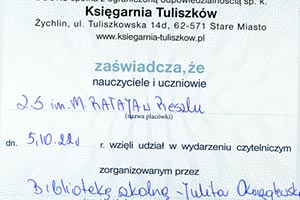 z ograniczoną odpowiedzialnością sp. k.
Księgarnia Tuliszków
Żychlin, ul. Tuliszkowska 14d, 62-571 Stare Miasto
www.ksiegarnia-tuliszkow.pl
zaświadcza, że
nauczyciele i uczniowie
ZS im. M. RATAJA w Reszlu
(nazwa placówki)
dn. 5.10.22r wzięli udział w wydarzeniu czytelniczym
zorganizowanym przez
Bibliotekę szkolną - Julita